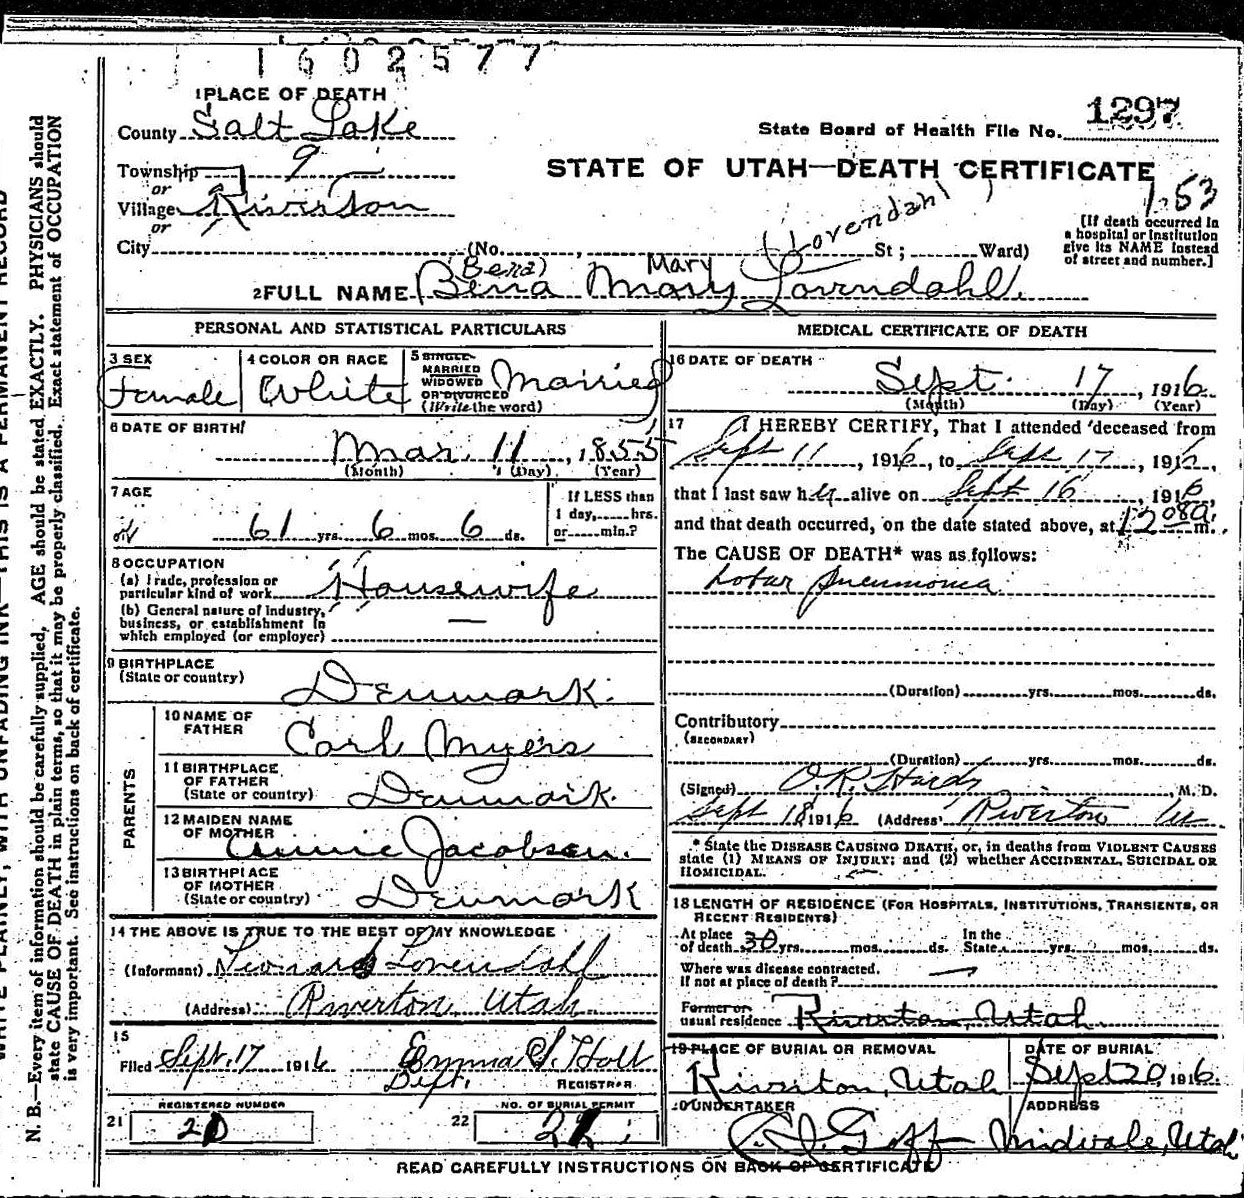 1602577
1 PLACE OF DEATH
County Salt Lake
1297
State Board of Health File No.
Township 9
or
STATE OF UTAH—DEATH CERTIFICATE
Village Riverton
or
153
City (No. , St ; Ward)
(Lovendahl)
[If death occurred in
a hospital or institution
give its NAME instead
of street and number.]
(Bena) Mary
2 FULL NAME Bena Mary Lovendahl.
PERSONAL AND STATISTICAL PARTICULARS
3 SEX
Female
4 COLOR OR RACE
White
5 SINGLE
MARRIED
WIDOWED
OR DIVORCED
(Write the word)
Married
6 DATE OF BIRTH
Mar. 11, 1855
(Month) (Day) (Year)
7 AGE
61 yrs. 6 mos. 6 ds.
If LESS than
1 day, hrs.
or min.?
8 OCCUPATION
(a) Trade, profession or
particular kind of work Housewife
(b) General nature of Industry,
business, or establishment in
which employed (or employer) —
9 BIRTHPLACE
(State or country) Denmark.
PARENTS
10 NAME OF
FATHER Carl Myers
11 BIRTHPLACE
OF FATHER
(State or country) Denmark.
12 MAIDEN NAME
OF MOTHER Annie Jacobsen.
13 BIRTHPLACE
OF MOTHER
(State or country) Denmark
14 THE ABOVE IS TRUE TO THE BEST OF MY KNOWLEDGE
(Informant) Leonard Lovendahl
(Address) Riverton, Utah
15
Filed Sept. 17 1916 Emma S. Holt
Dept. REGISTRAR
REGISTERED NUMBER
21
NO. OF BURIAL PERMIT
22
MEDICAL CERTIFICATE OF DEATH
16 DATE OF DEATH
Sept. 17, 1916
(Month) (Day) (Year)
17 I HEREBY CERTIFY, That I attended deceased from
Sept 11, 1916, to Sept 17, 1916,
that I last saw her alive on Sept 16, 1916,
and that death occurred, on the date stated above, at m.
The CAUSE OF DEATH* was as follows:
Lobar Pneumonia
(Duration) yrs. mos. ds.
Contributory
(SECONDARY)
(Duration) yrs. mos. ds.
(Signed) O. R. Hardy, M. D.
Sept 18 1916 (Address) Riverton Ut
* State the DISEASE CAUSING DEATH, or, in deaths from VIOLENT CAUSES
state (1) MEANS OF INJURY; and (2) whether ACCIDENTAL, SUICIDAL OR
HOMICIDAL.
18 LENGTH OF RESIDENCE (FOR HOSPITALS, INSTITUTIONS, TRANSIENTS, OR
RECENT RESIDENTS)
At place
of death 30 yrs. mos. ds.
In the
State yrs. mos. ds.
Where was disease contracted.
If not at place of death?
Former or
usual residence Riverton, Utah.
19 PLACE OF BURIAL OR REMOVAL
Riverton, Utah
DATE OF BURIAL
Sept 20, 1916.
20 UNDERTAKER
Goff
ADDRESS
Midvale, Utah
READ CAREFULLY INSTRUCTIONS ON BACK OF CERTIFICATE
N. B.—Every item of information should be carefully supplied. AGE should be stated EXACTLY. PHYSICIANS should
state CAUSE OF DEATH in plain terms, so that it may be properly classified. Exact statement of OCCUPATION
is very important. See instructions on back of certificate.
WRITE PLAINLY, WITH UNFADING INK—THIS IS A PERMANENT RECORD